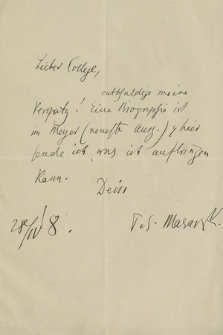 Lieber College,
entschuldige meine
Verspätg! Eine Biographie ist
im Meyer (neueste Ausg.) & hier
sende ich, was ich auftreiben
kann.
Dein
28/IV 8. T. G. Masaryk.